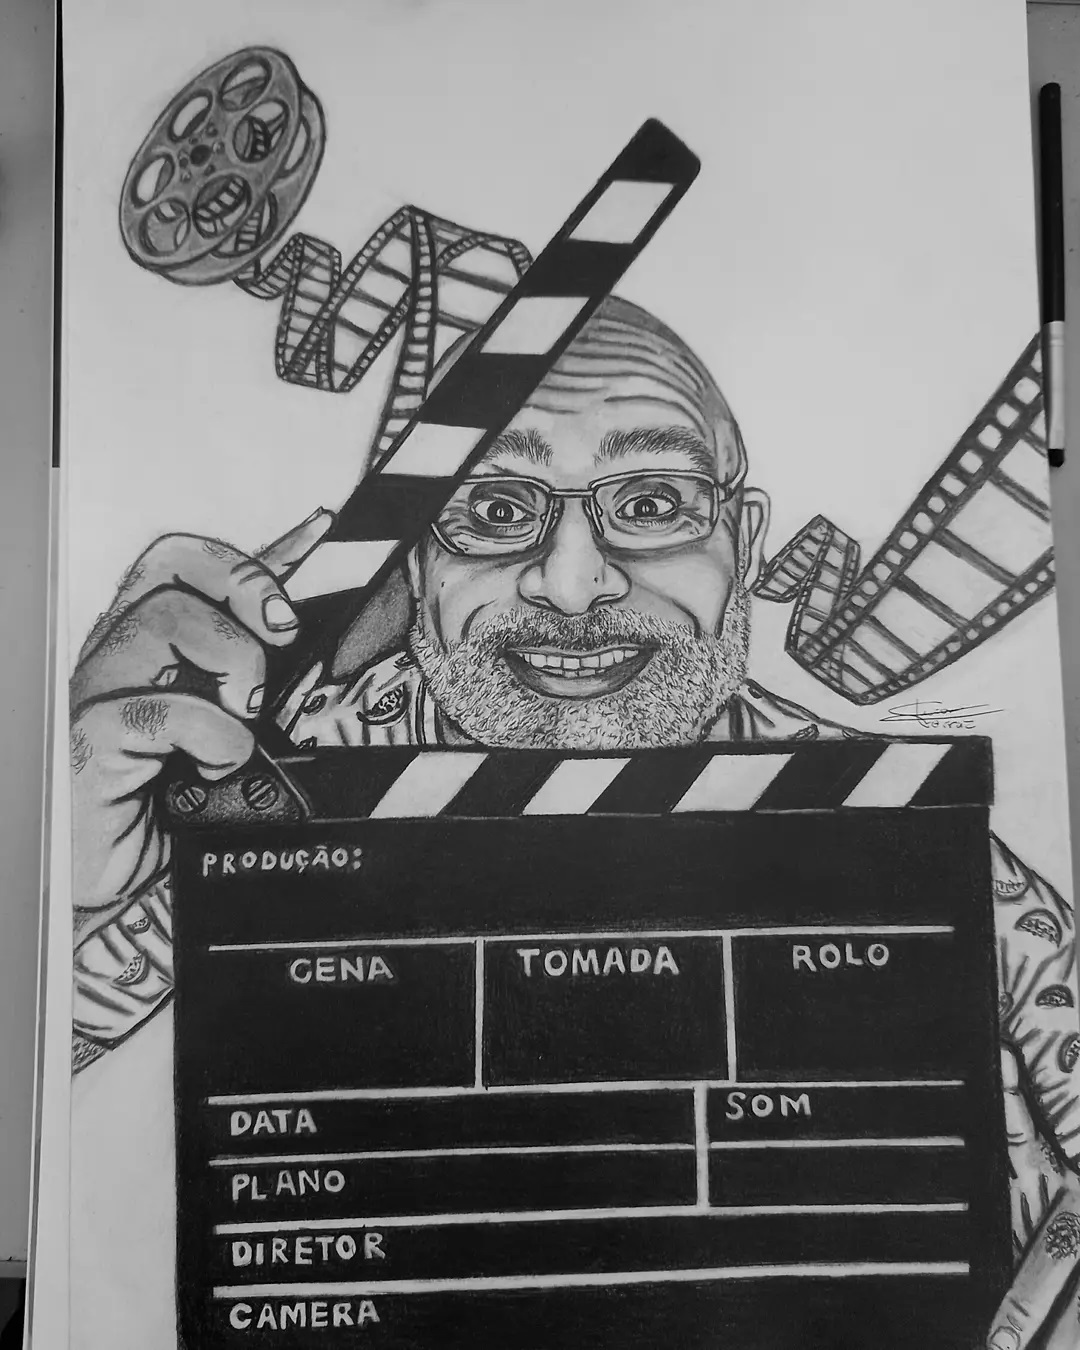 PRODUÇÃO:
CENA TOMADA ROLO
DATA SOM
PLANO
DIRETOR
CAMERA